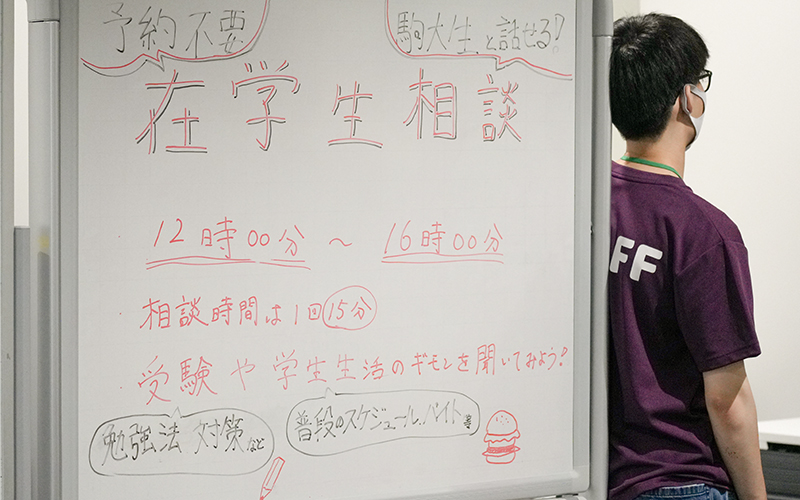 予約不要
駒大生と話せる!
在学生相談
12時00分 ~ 16時00分
相談時間は1回15分
受験や学生生活のギモンを聞いてみよう!
勉強法 対策など
普段のスケジュール、バイト等
FF